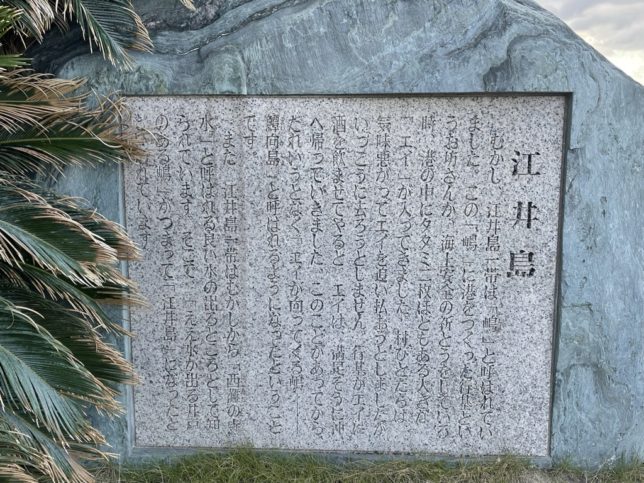 江井島
むかし、江井島一帯は「嶋」と呼ばれてい
ました。この「嶋」に港をつくった行基とい
うお坊さんが、海上安全の祈とうをしている
時、港の中にタタミ二枚ほどもある大きな
「エイ」が入ってきました。村びとたちは
気味悪がってエイを追い払おうとしましたが、
いっこうに去ろうとしません。行基がエイに
酒を飲ませてやると、エイは、満足そうに沖
へ帰っていきました。このことがあってから
だれいうとなく「エイが向ってくる嶋―
向島」と呼ばれるようになったということ
です。
また、江井島一帯はむかしから「西灘の寺
水」と呼ばれる良い水の出るところとして知
られています。そこで、「ええ水が出る井戸
のある嶋」がつまって「江井島」になったと
れています。